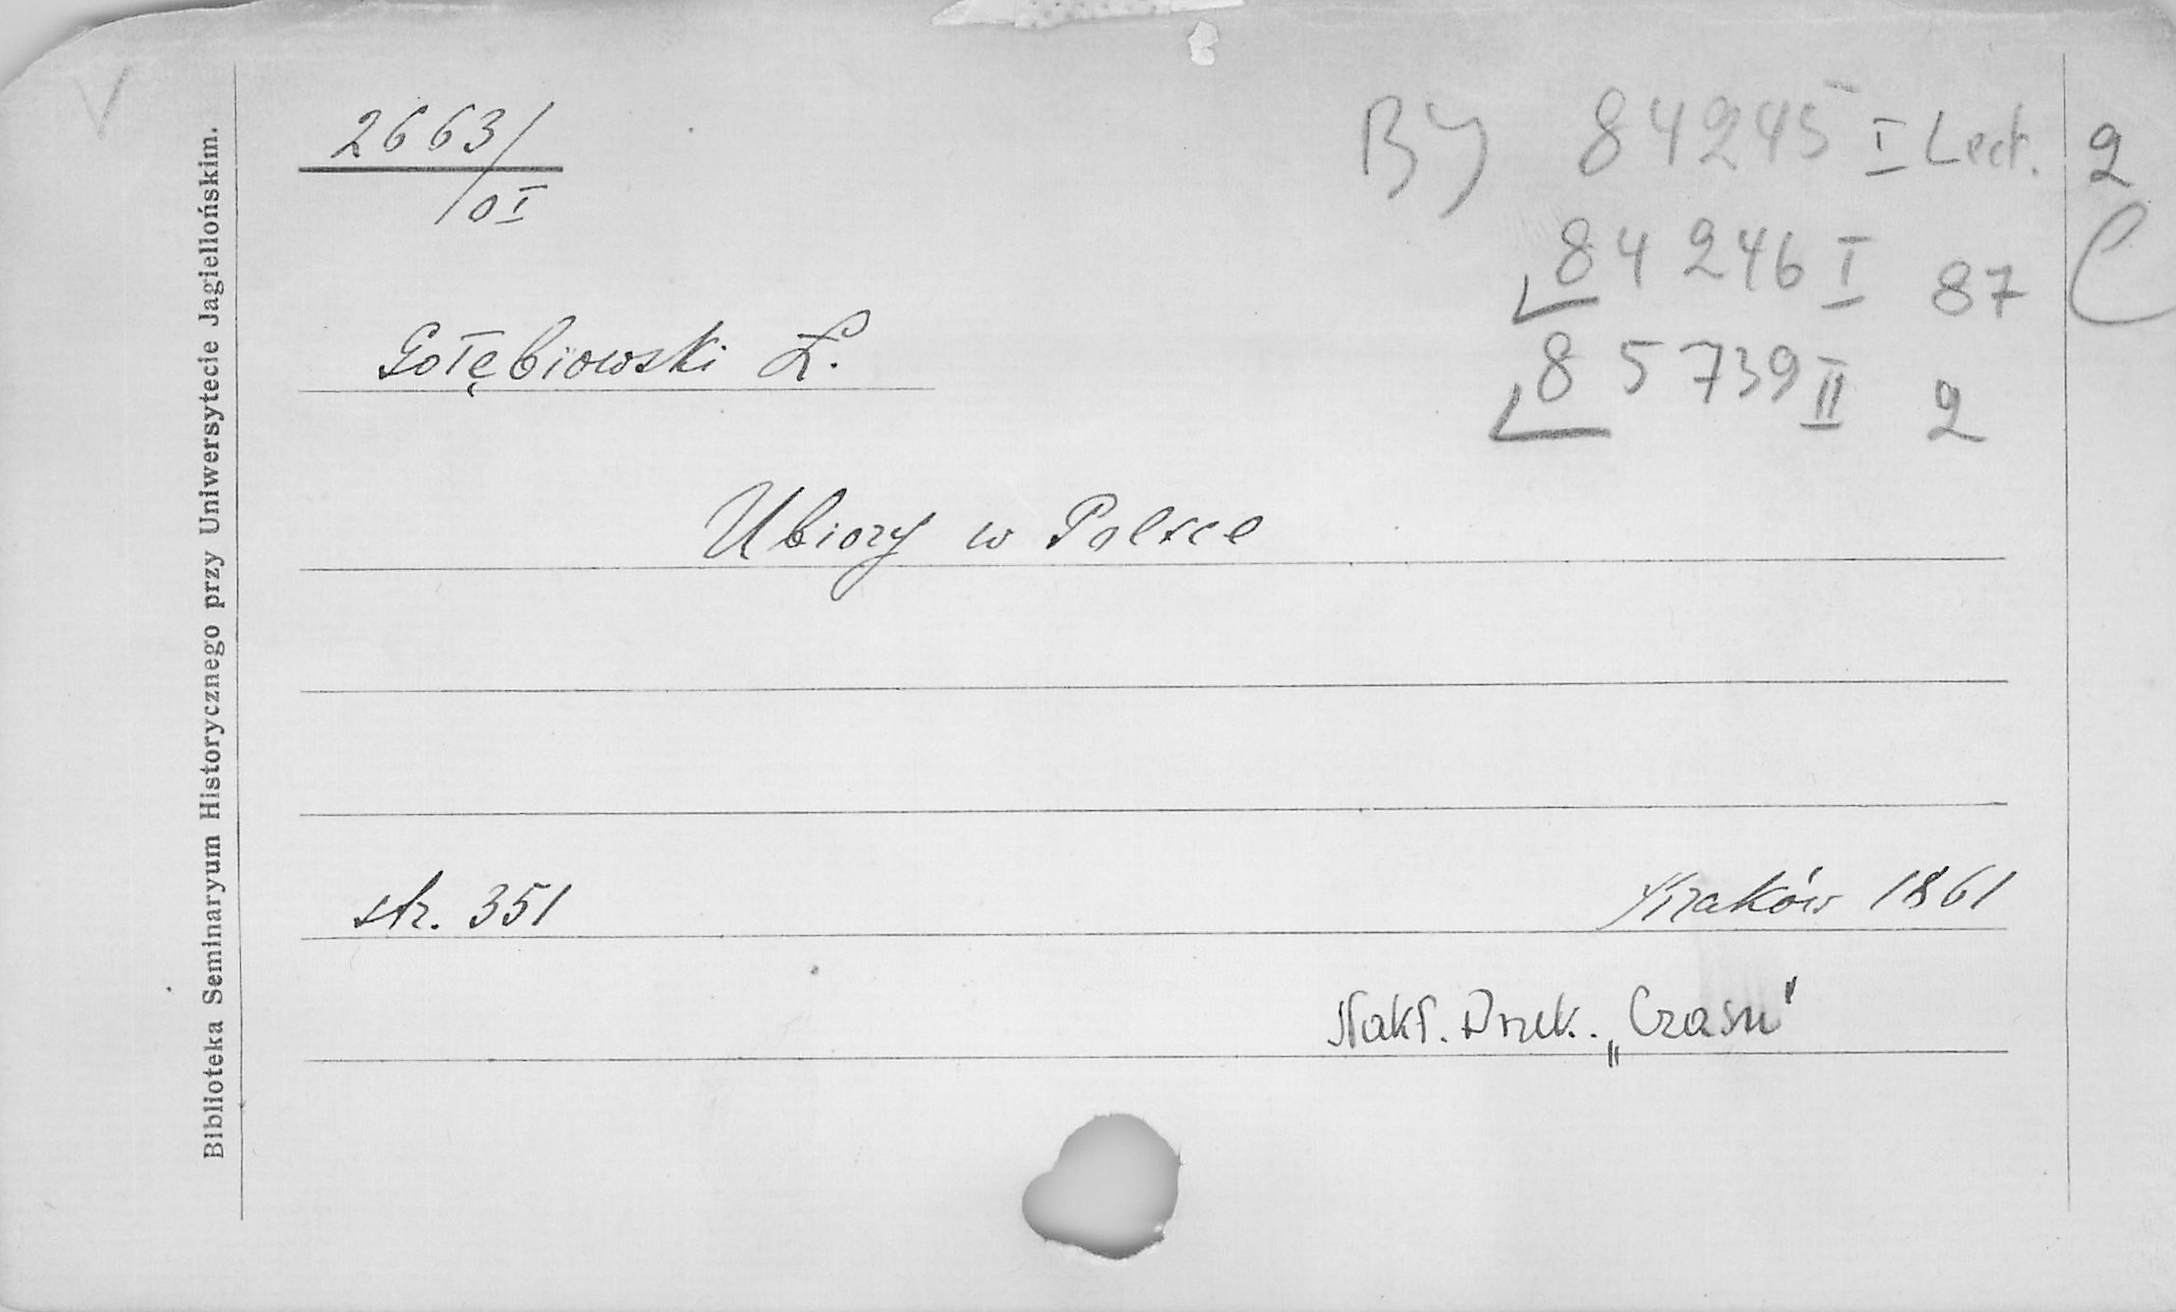 Biblioteka Seminaryum Historycznego przy Uniwersytecie Jagiellońskim.
V
2663/
/0I
BJ 84245 I Lect. 2
84246 I 87 C
85739 II 2
Gołębiowski Ł.
Ubiory w Polsce
str. 351
Kraków 1861
Nakł. Druk. „Czasu"